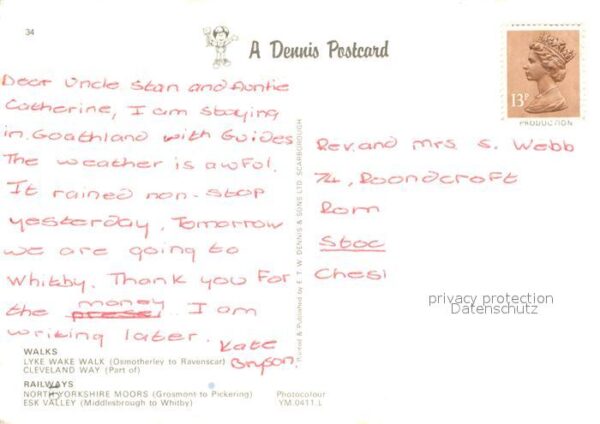 34
A Dennis Postcard
13P
PRODUCTION
Dear Uncle Stan and Auntie
Catherine, I am staying
in Goathland with Guides
The weather is awful.
It rained non-stop
yesterday. Tomorrow
we are going to
Whitby. Thank you For
the money I am
writing later. Kate
Bryson
Printed & Published by E. T. W. DENNIS & SONS LTD. SCARBOROUGH
Rev. and Mrs S. Webb
74, Roondcroft
Rom
Stoc
Chesi
privacy protection
Datenschutz
WALKS
LYKE WAKE WALK (Osmotherley to Ravenscar)
CLEVELAND WAY (Part of)
RAILWAYS
NORTH YORKSHIRE MOORS (Grosmont to Pickering)
ESK VALLEY (Middlesbrough to Whitby)
Photocolour
YM.0411.L